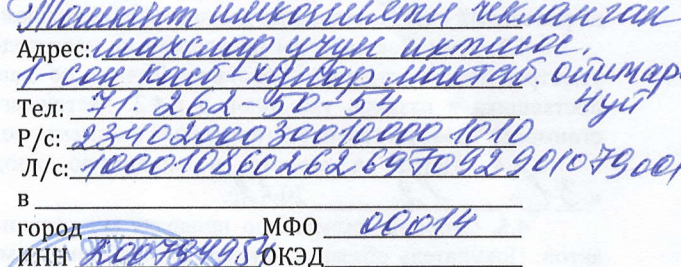 Тошкент имконияти чекланган
Адрес: шахслар учун ихтисос.
1-сон касб-хунар мактаб.
Тел: 71. 262-50-54 4уй
Р/с: 23402000300100001010
Л/с: 100010860262697092901079001
в
город МФО 00014
ИНН 200794954 ОКЭД